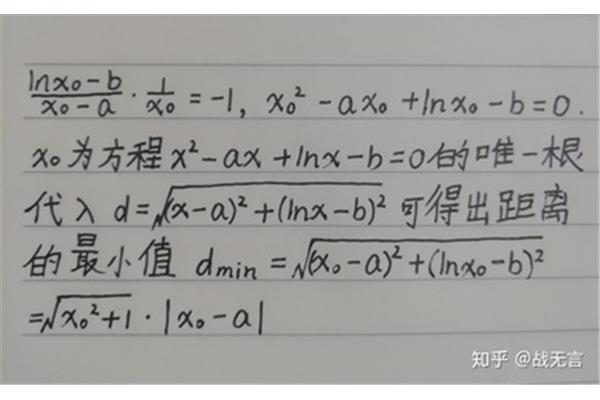 (lnx₀-b)/(x₀-a) · 1/x₀ = -1, x₀² - ax₀ + lnx₀ - b = 0.
x₀为方程x² - ax + lnx - b = 0的唯一根
代入 d = √((x-a)² + (lnx-b)²) 可得出距离
的最小值 dmin = √((x₀-a)² + (lnx₀-b)²)
= √(x₀²+1) · |x₀-a|
知乎 @战无言